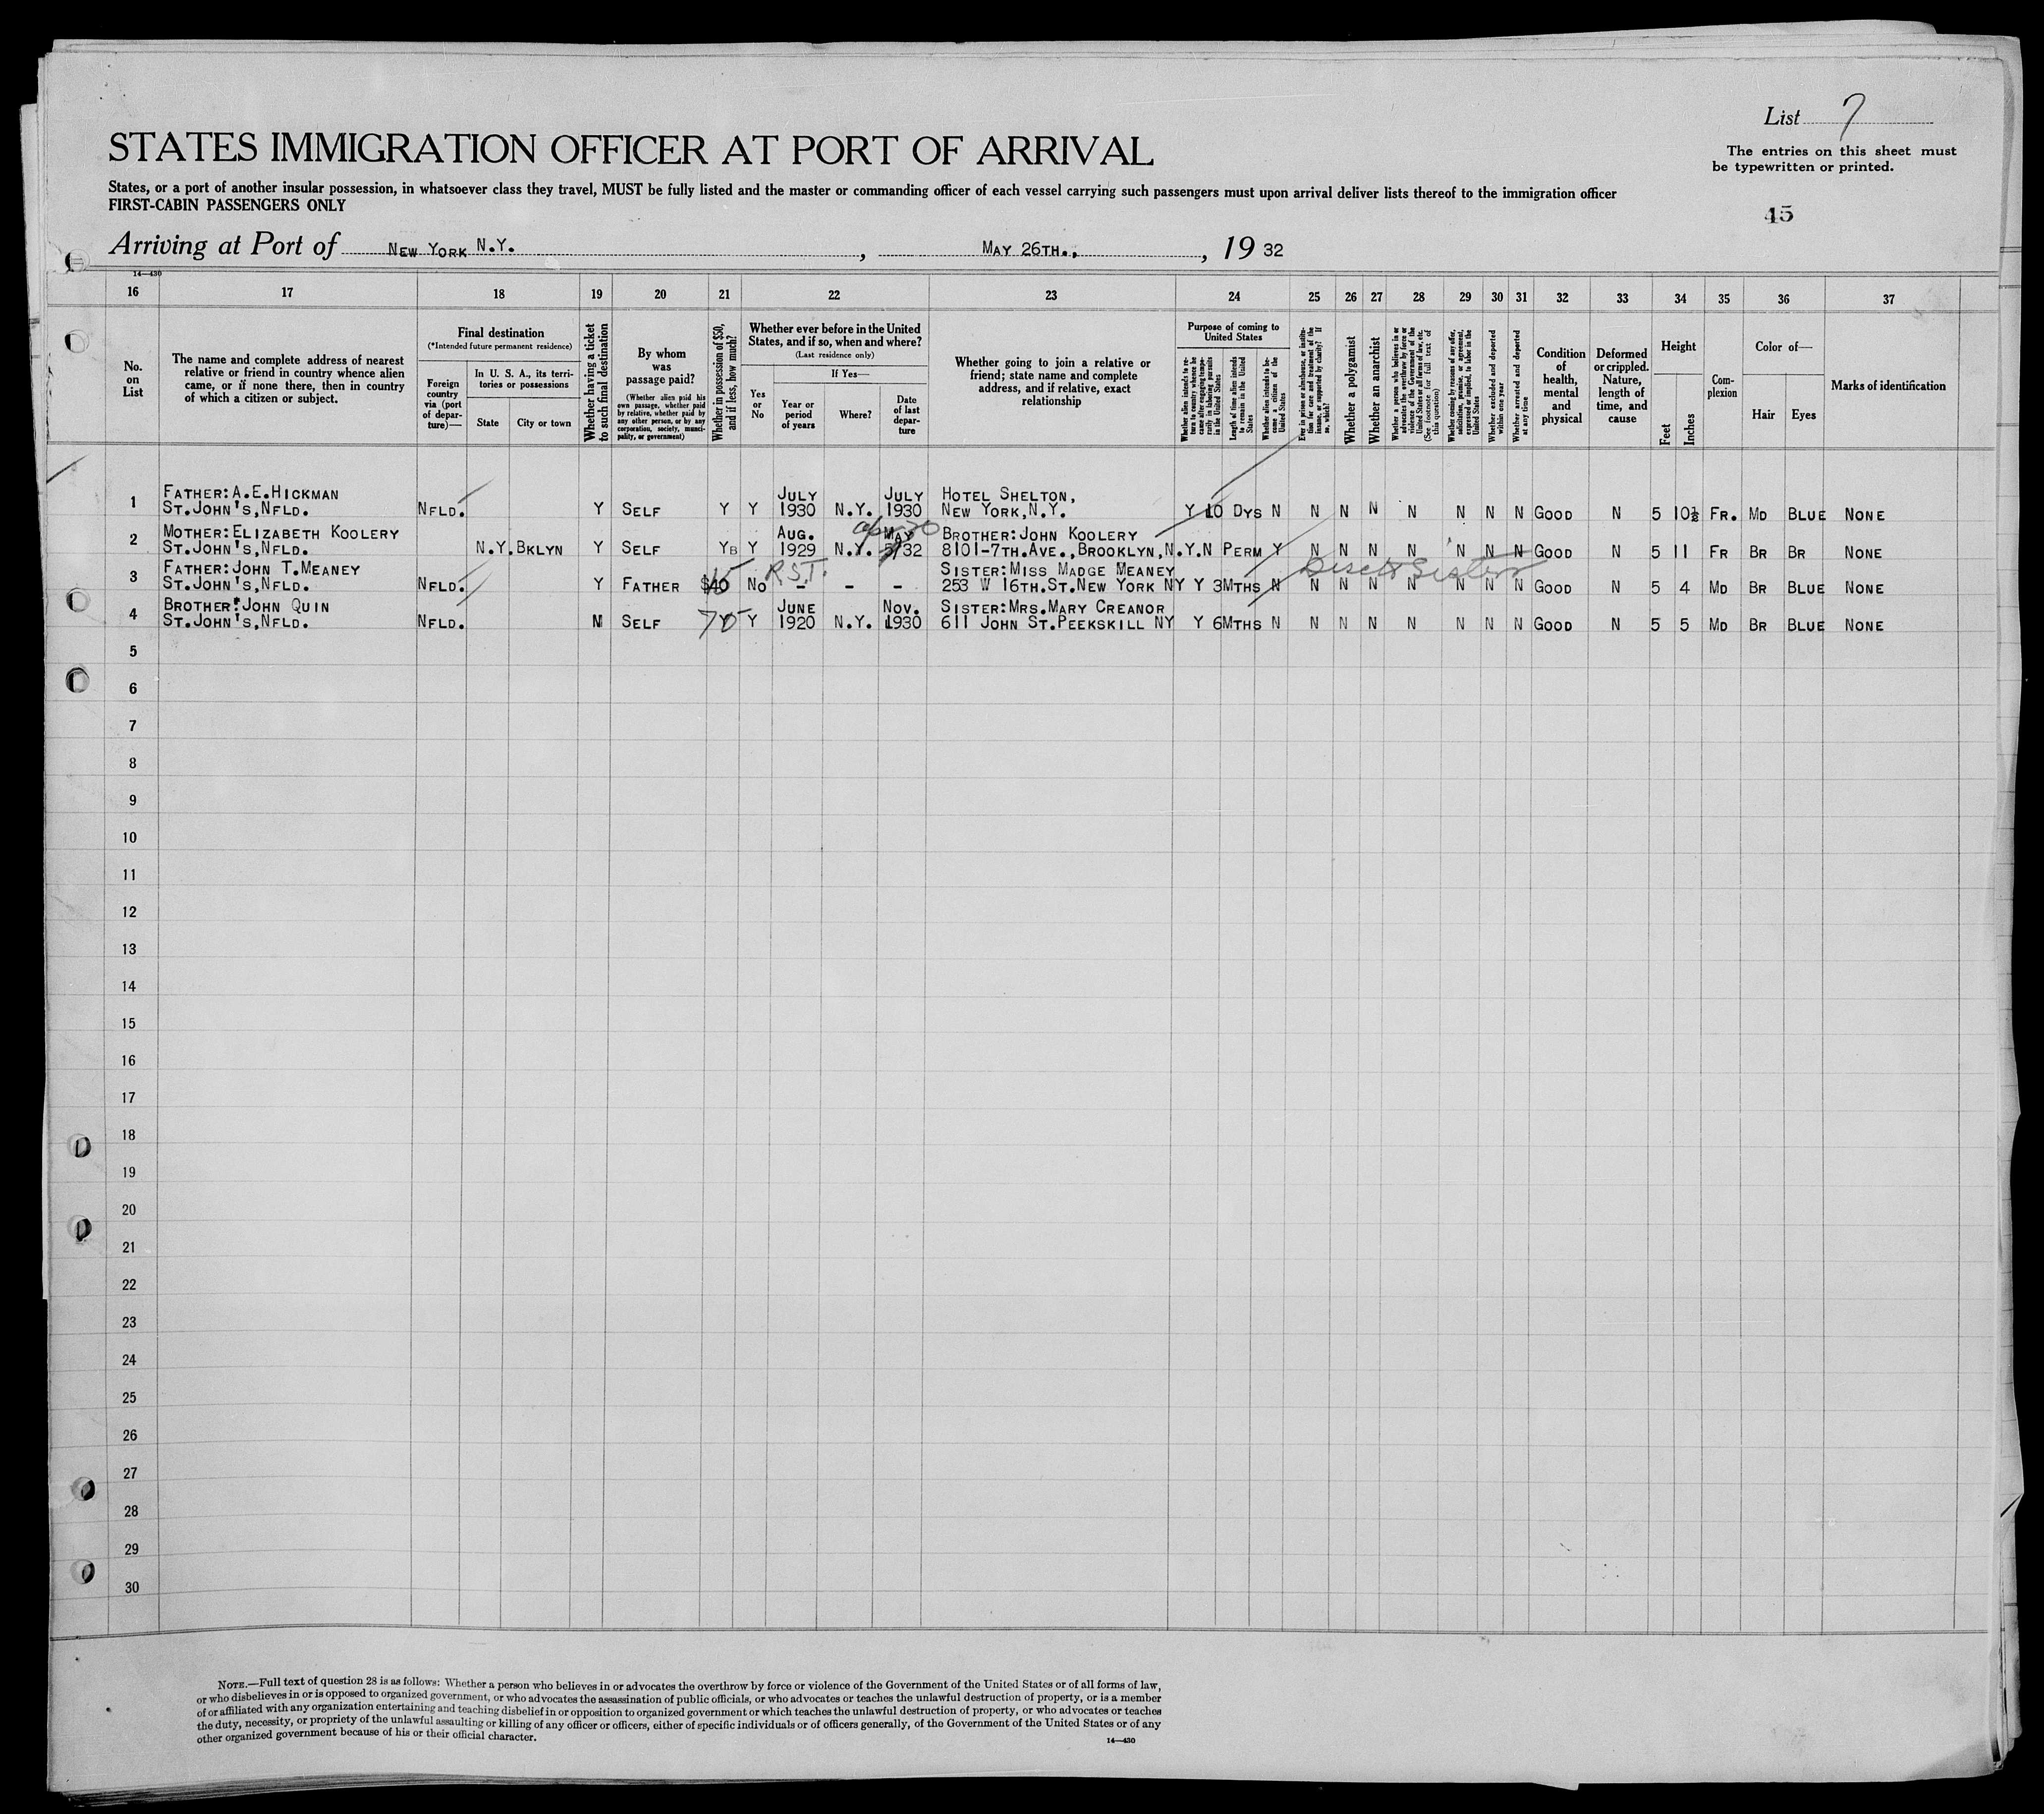 List 7
STATES IMMIGRATION OFFICER AT PORT OF ARRIVAL
The entries on this sheet must
be typewritten or printed.
States, or a port of another insular possession, in whatsoever class they travel, MUST be fully listed and the master or commanding officer of each vessel carrying such passengers must upon arrival deliver lists thereof to the immigration officer
FIRST-CABIN PASSENGERS ONLY
45
Arriving at Port of NEW YORK N.Y. , MAY 26TH., , 19 32
14—430
16 17 18 19 20 21 22 23 24 25 26 27 28 29 30 31 32 33 34 35 36 37
No.
on
List
The name and complete address of nearest
relative or friend in country whence alien
came, or if none there, then in country
of which a citizen or subject.
Final destination
(*Intended future permanent residence)
Foreign
country
via (port
of depar-
ture)—
In U. S. A., its terri-
tories or possessions
State
City or town
Whether having a ticket
to such final destination
By whom
was
passage paid?
(Whether alien paid his
own passage, whether paid
by relative, whether paid by
any other person, or by any
corporation, society, munici-
pality, or government)
Whether in possession of $50,
and if less, how much?
Whether ever before in the United
States, and if so, when and where?
(Last residence only)
Yes
or
No
If Yes—
Year or
period
of years
Where?
Date
of last
depar-
ture
Whether going to join a relative or
friend; state name and complete
address, and if relative, exact
relationship
Purpose of coming to
United States
Whether alien intends to re-
turn to country whence he
came after engaging tempo-
rarily in laboring pursuits
in the United States
Length of time alien intends
to remain in the United
States
Whether alien intends to be-
come a citizen of the
United States
Ever in prison or almshouse, or institu-
tion for care and treatment of the
insane, or supported by charity? If
so, which?
Whether a polygamist
Whether an anarchist
Whether a person who believes in or
advocates the overthrow by force or
violence of the Government of the
United States or all forms of law, etc.
(See footnote for full text of
this question)
Whether coming by reasons of any offer,
solicitation, promise, or agreement,
expressed or implied, to labor in the
United States
Whether excluded and deported
within one year
Whether arrested and deported
at any time
Condition
of
health,
mental
and
physical
Deformed
or crippled.
Nature,
length of
time, and
cause
Height
Feet
Inches
Com-
plexion
Color of—
Hair
Eyes
Marks of identification
1 FATHER: A.E.HICKMAN JULY JULY HOTEL SHELTON,
ST.JOHN'S,NFLD. NFLD. Y SELF Y Y 1930 N.Y. 1930 NEW YORK,N.Y. Y 10 DYS N N N N N N N N GOOD N 5 10½ FR. MD BLUE NONE
apr 30
2 MOTHER: ELIZABETH KOOLERY AUG. MAY BROTHER: JOHN KOOLERY
ST.JOHN'S,NFLD. N.Y. BKLYN Y SELF YB Y 1929 N.Y. 32 8101-7TH.AVE.,BROOKLYN,N.Y. N PERM Y N N N N N N N GOOD N 5 11 FR BR BR NONE
R.S.T.
Sister
3 FATHER: JOHN T.MEANEY SISTER: MISS MADGE MEANEY
ST.JOHN'S,NFLD. NFLD. Y FATHER $40 NO - - - 253 W 16TH.ST.NEW YORK NY Y 3MTHS N N N N N N N N GOOD N 5 4 MD BR BLUE NONE
4 BROTHER: JOHN QUIN JUNE NOV. SISTER: MRS.MARY CREANOR
ST.JOHN'S,NFLD. NFLD. N SELF 70 Y Y 1920 N.Y. 1930 611 JOHN ST.PEEKSKILL NY Y 6MTHS N N N N N N N N GOOD N 5 5 MD BR BLUE NONE
5
6
7
8
9
10
11
12
13
14
15
16
17
18
19
20
21
22
23
24
25
26
27
28
29
30
NOTE.—Full text of question 28 is as follows: Whether a person who believes in or advocates the overthrow by force or violence of the Government of the United States or of all forms of law,
or who disbelieves in or is opposed to organized government, or who advocates the assassination of public officials, or who advocates or teaches the unlawful destruction of property, or is a member
of or affiliated with any organization entertaining and teaching disbelief in or opposition to organized government or which teaches the unlawful destruction of property, or who advocates or teaches
the duty, necessity, or propriety of the unlawful assaulting or killing of any officer or officers, either of specific individuals or of officers generally, of the Government of the United States or of any
other organized government because of his or their official character.
14—430